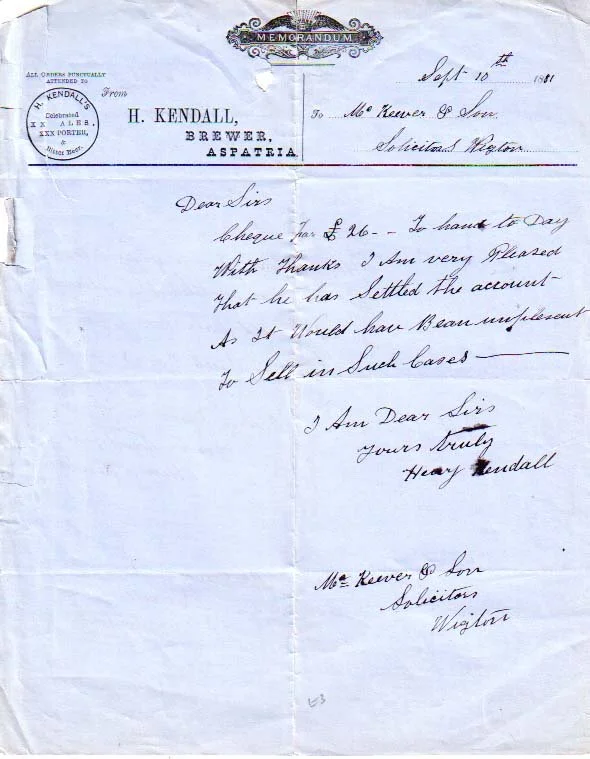 MEMORANDUM
ALL ORDERS PUNCTUALLY
ATTENDED TO
Sept 10th 1881
From
To Mc Keever & Son
H. KENDALL'S
Celebrated
XX ALES,
XXX PORTER,
&
Bitter Beer.
H. KENDALL,
BREWER,
ASPATRIA
Solicitors Wigton
Dear Sirs
Cheque for £26 - - To hand to Day
With Thanks I Am very Pleased
That he has Settled the account
As It Would hav Bean unplesent
To Sell in Such Cases
I Am Dear Sirs
Yours truly
Henry Kendall
Mc Keever & Son
Solicitors
Wigton